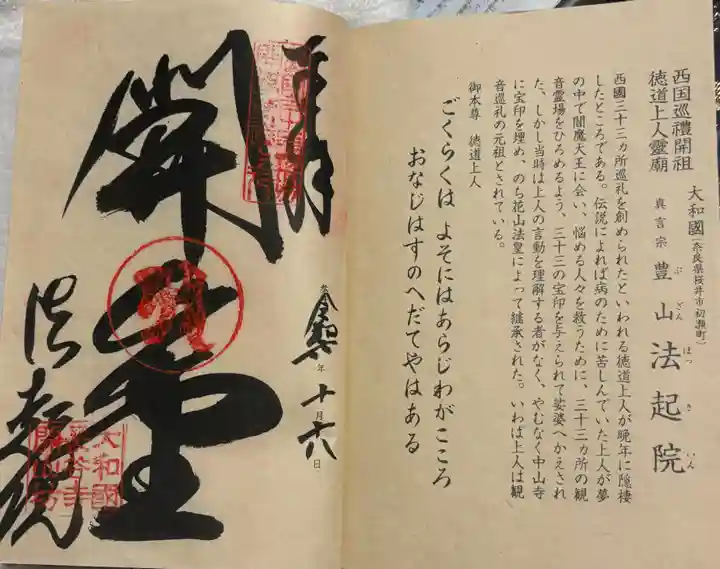 西国巡禮開祖
徳道上人靈廟
大和國(奈良県桜井市初瀬町)
真言宗 豊山 法起院
ぶざん ほっきいん
西國三十三ヵ所巡礼を創められたといわれる徳道上人が晩年に隠棲
したところである。伝説によれば病のために苦しんでいた上人が夢
の中で閻魔大王に会い、悩める人々を救うために、三十三ヵ所の観
音霊場をひろめるよう、三十三の宝印を与えられて娑婆へかえされ
た、しかし当時は上人の言動を理解する者がなく、やむなく中山寺
に宝印を埋め、のち花山法皇によって継承された。いわば上人は観
音巡礼の元祖とされている。
御本尊 徳道上人
ごくらくは よそにはあらじわがこころ
おなじはすのへだてやはある
奉拝
令和 年十月十六日
開山堂
法起院
大和國
長谷寺
開山坊